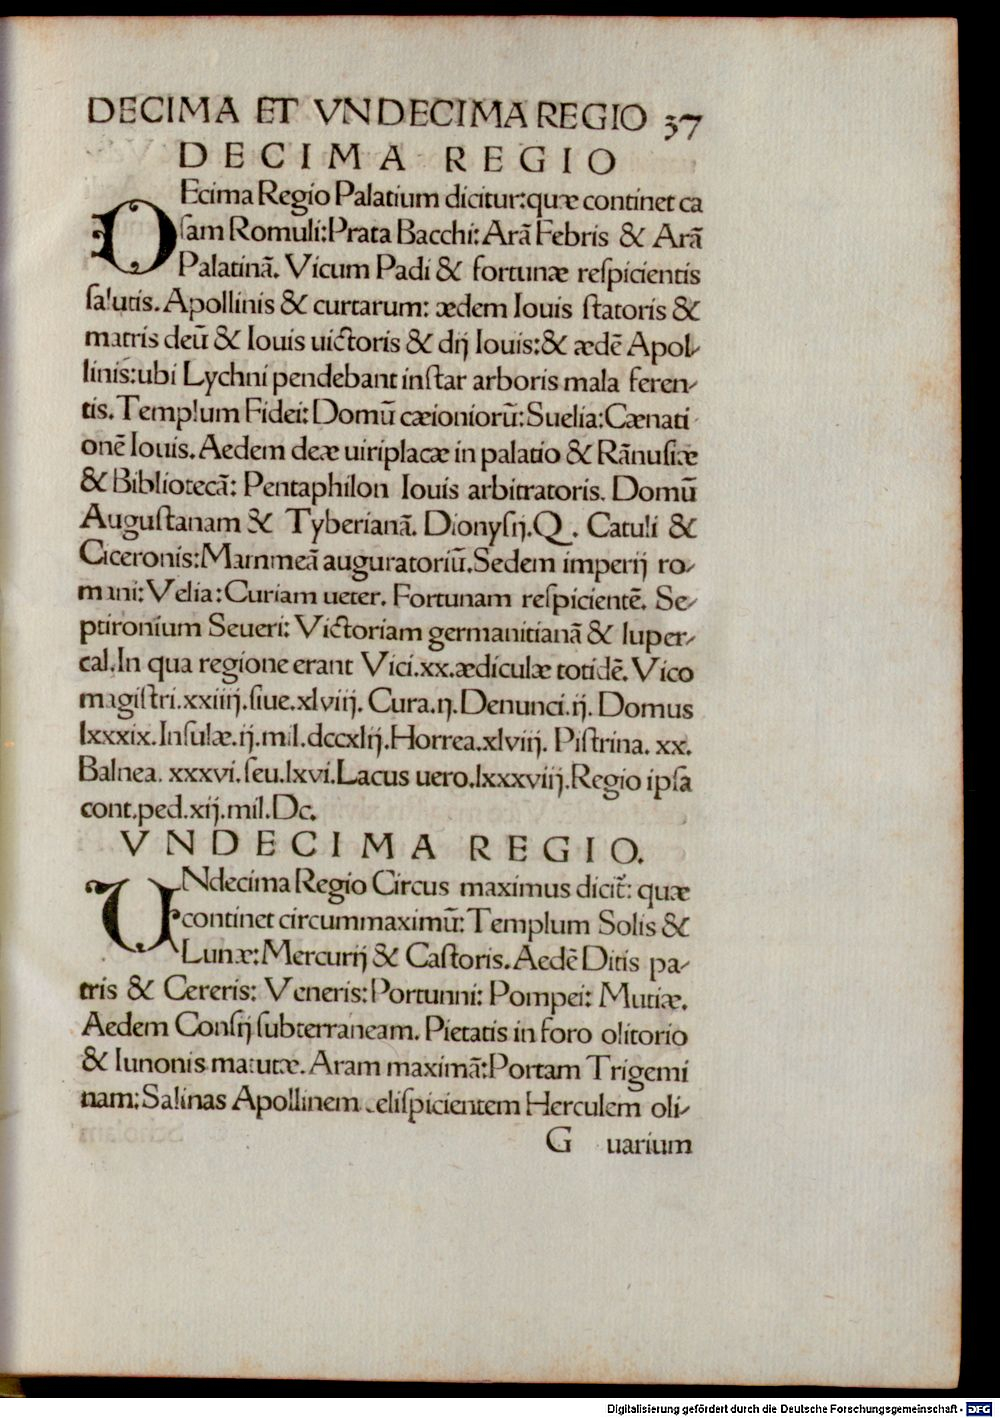 DECIMA ET VNDECIMA REGIO 37
DECIMA REGIO
DEcima Regio Palatium dicitur:quæ continet ca
ſam Romuli:Prata Bacchi:Arā Febris & Arā
Palatinā. Vicum Padi & fortunæ reſpicientis
ſalutis. Apollinis & curtarum: ædem Iouis ſtatoris &
matris deū & Iouis uictoris & dij Iouis:& ædē Apol-
linis:ubi Lychni pendebant inſtar arboris mala feren-
tis.Templum Fidei:Domū cæioniorū:Suelia:Cænati
onē Iouis.Aedem deæ uiriplacæ in palatio & Rānuſiæ
& Bibliotecā: Pentaphilon Iouis arbitratoris. Domū
Auguſtanam & Tyberianā. Dionyſij.Q. Catuli &
Ciceronis:Mammeā auguratoriū.Sedem imperij ro-
mani:Velia:Curiam ueter. Fortunam reſpicientē. Se-
ptironium Seueri: Victoriam germanitianā & luper-
cal.In qua regione erant Vici.xx.ædiculæ totidē.Vico
magiſtri.xxiiij.ſiue.xlviij. Cura.ij.Denunci.ij. Domus
lxxxix.Inſulæ.ij.mil.dccxlij.Horrea.xlviij. Piſtrina. xx.
Balnea. xxxvi.ſeu.lxvi.Lacus uero.lxxxviij.Regio ipſa
cont.ped.xij.mil.Dc.
VNDECIMA REGIO.
VNdecima Regio Circus maximus dicit̄: quæ
continet circummaximū:Templum Solis &
Lunæ:Mercurij & Caſtoris.Aedē Ditis pa-
tris & Cereris: Veneris:Portunni: Pompei: Mutiæ.
Aedem Conſij ſubterraneam. Pietatis in foro olitorio
& Iunonis matutæ. Aram maximā:Portam Trigemi
nam:Salinas Apollinem celiſpicientem Herculem oli-
G uarium
Digitalisierung gefördert durch die Deutsche Forschungsgemeinschaft - DFG